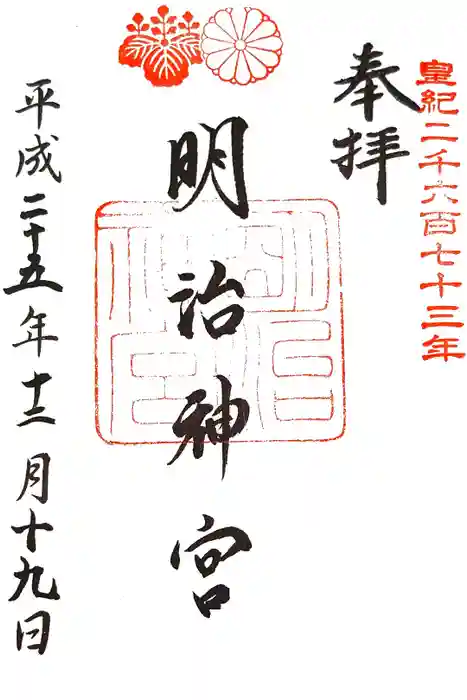 皇紀二千六百七十三年
奉拝
明治神宮
明治
神宮
平成二十五年十二月十九日